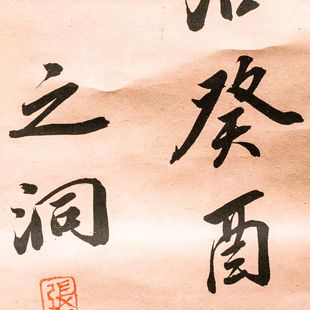 癸酉
之洞
張